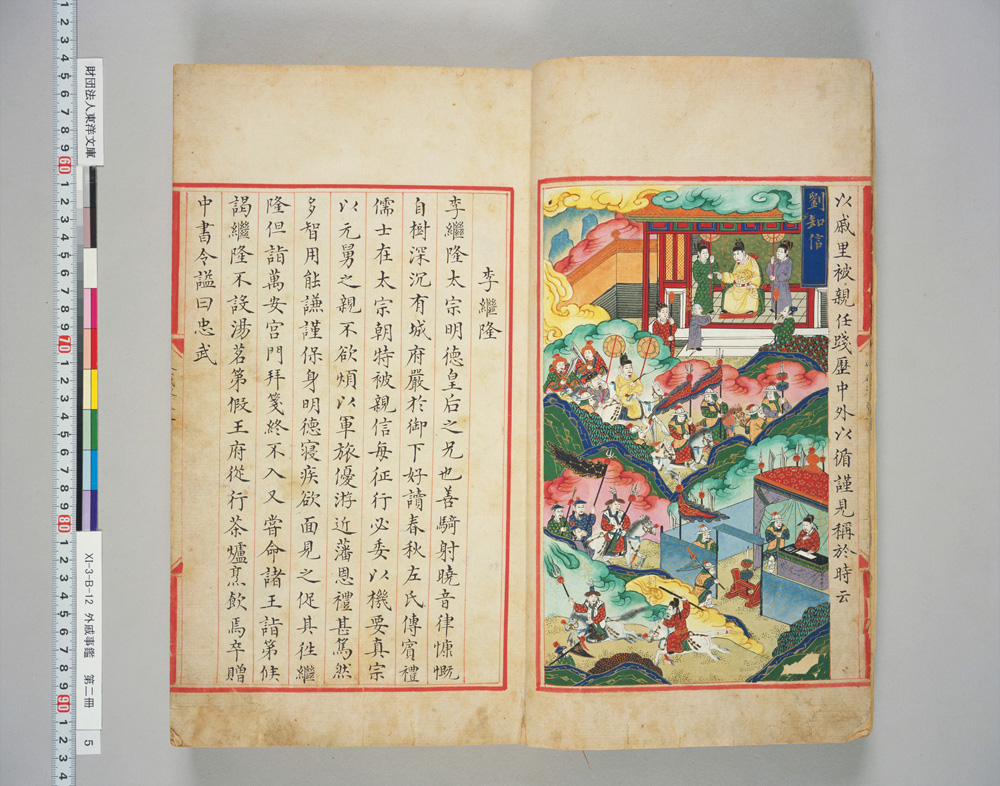 以戚里被親任踐歷中外以循謹見稱於時云
劉知信
李繼隆
李繼隆太宗明德皇后之兄也善騎射曉音律慷慨
自樹深沉有城府嚴於御下好讀春秋左氏傳賓禮
儒士在太宗朝特被親信每征行必委以機要真宗
以元舅之親不欲煩以軍旅優游近藩恩禮甚篤然
多智用能謙謹保身明德寢疾欲面見之促其往繼
隆但詣萬安宮門拜箋終不入又嘗命諸王詣第候
謁繼隆不設湯茗第假王府從行茶爐烹飲焉卒贈
中書令謚曰忠武
財団法人東洋文庫
XI-3-B-12 外戚事鑑 第二冊
5